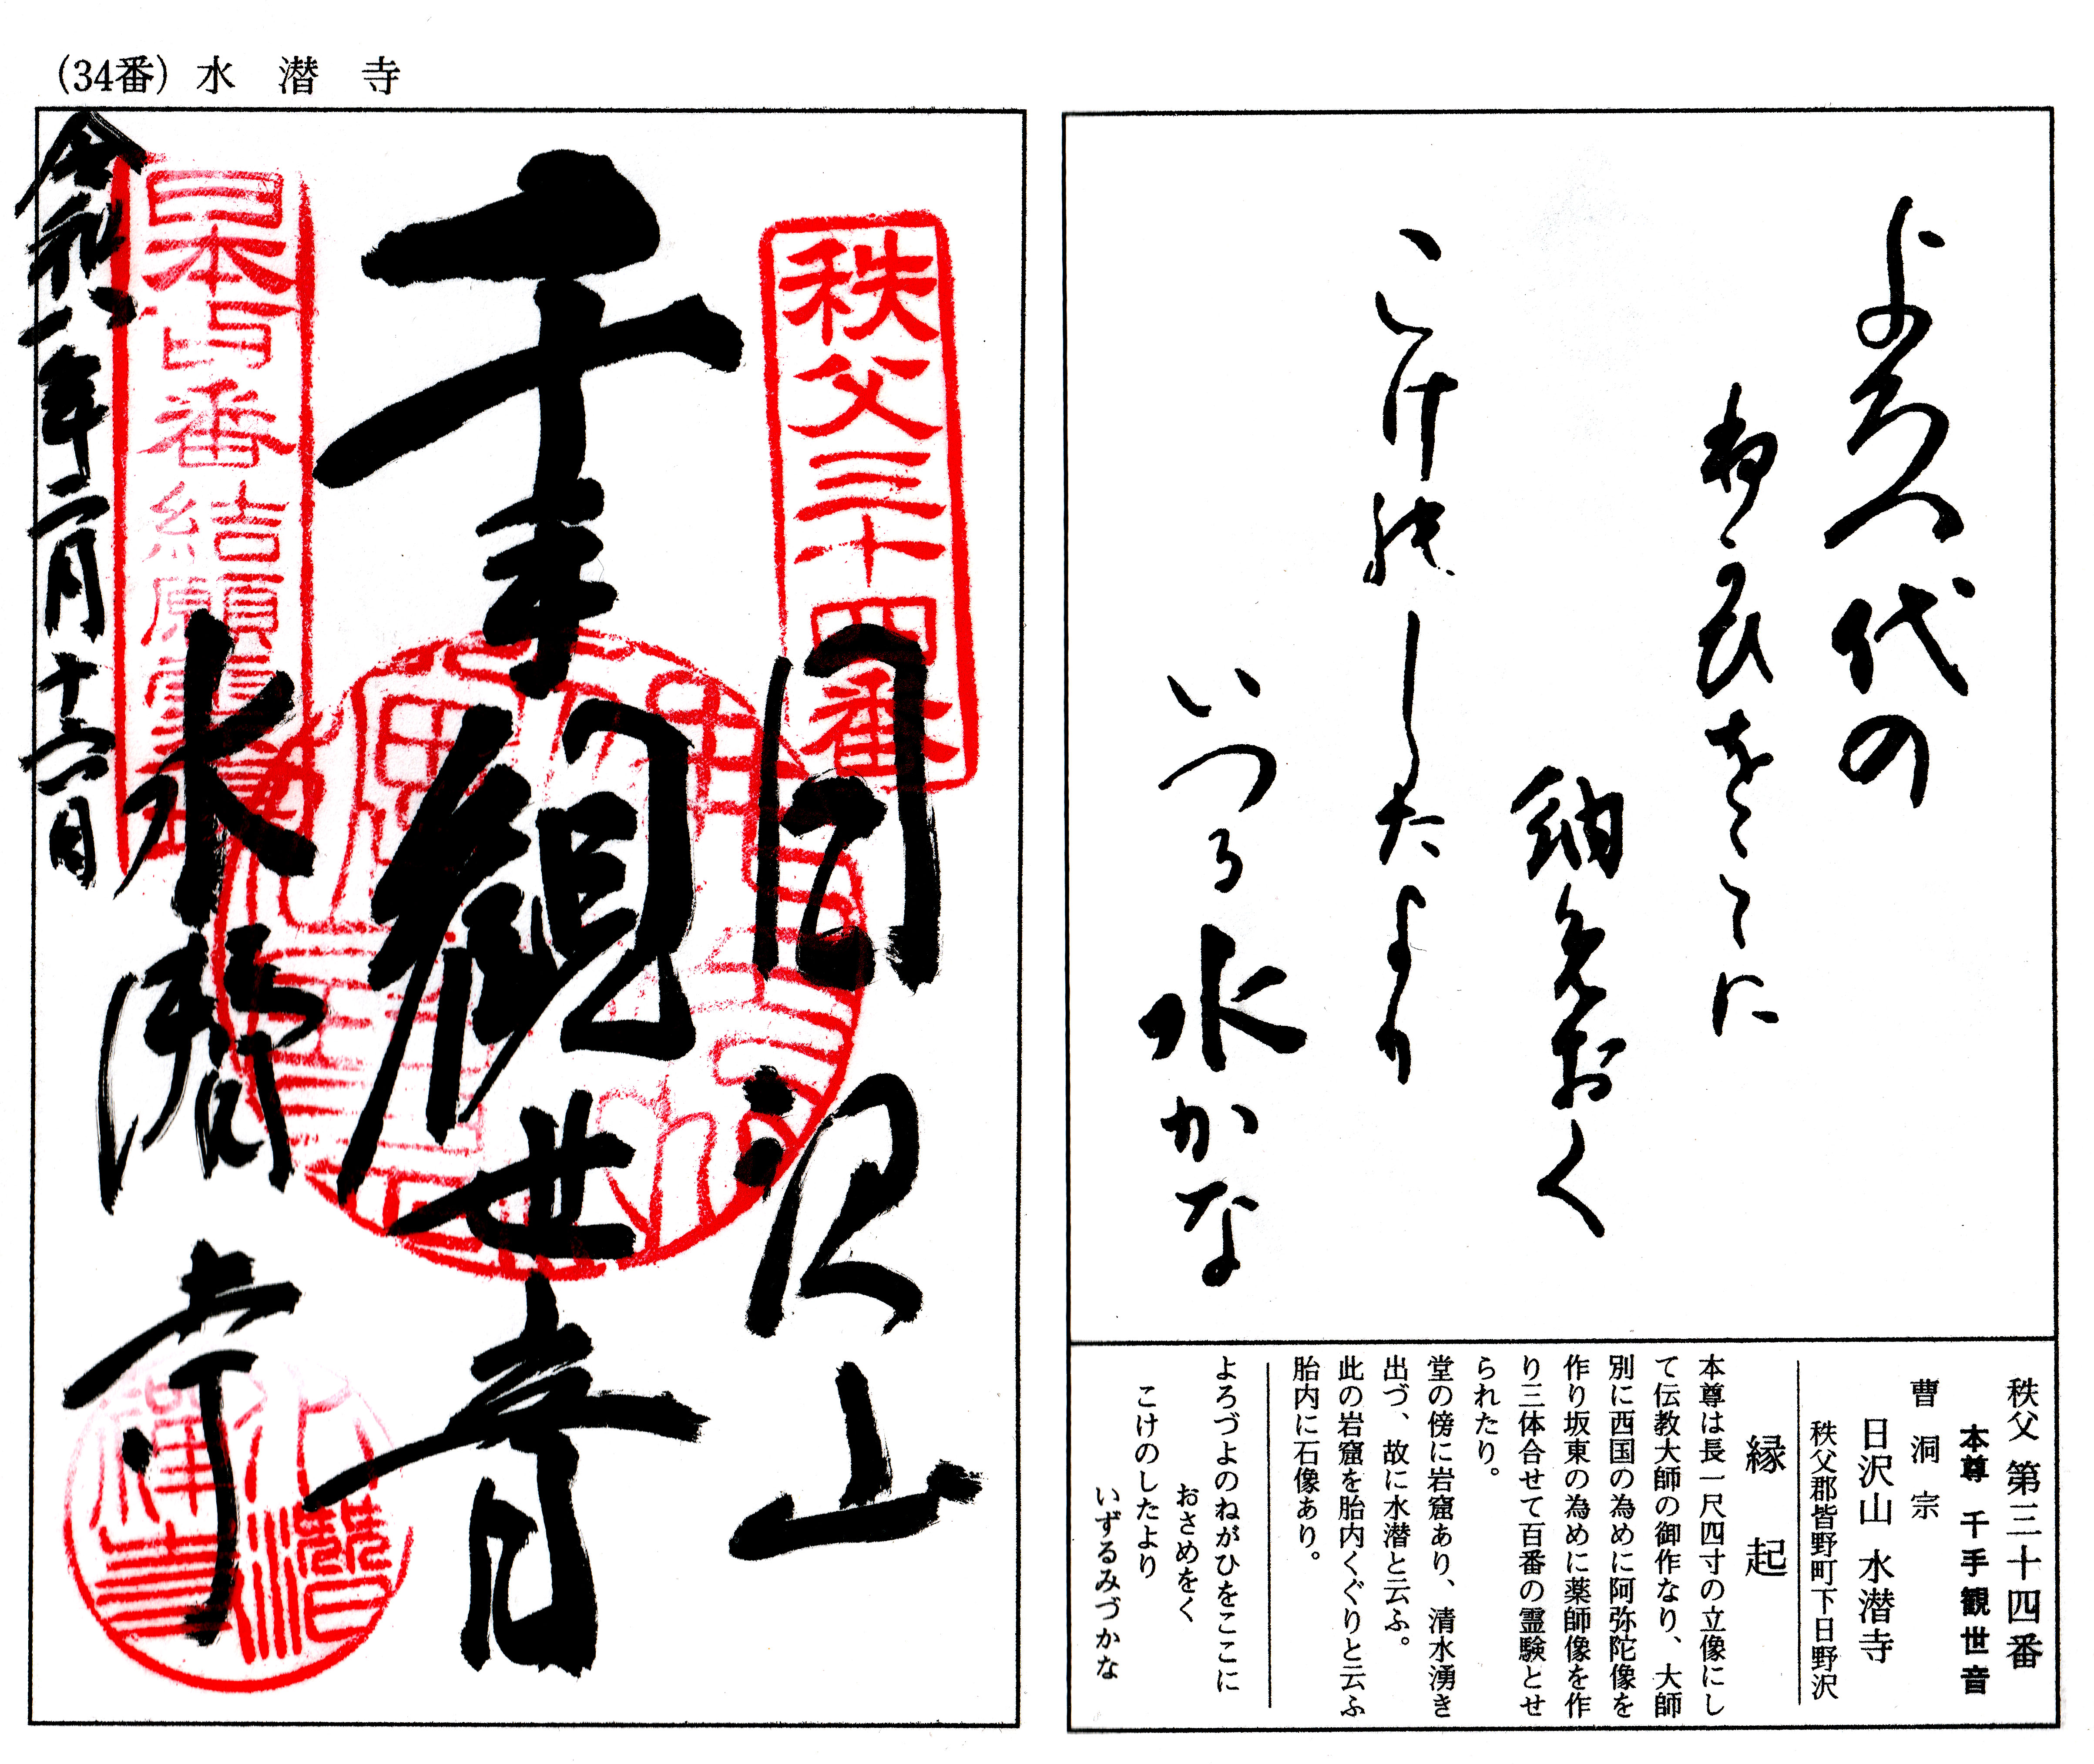 (34番) 水潜寺
よろつ代の
ねかひをこゝに
納めおく
こけの
したより
いつる水かな
秩父 第三十四番
本尊 千手観世音
曹洞宗
日沢山 水潜寺
秩父郡皆野町下日野沢
縁起
本尊は長一尺四寸の立像にし
て伝教大師の御作なり、大師
別に西国の為めに阿弥陀像を
作り坂東の為めに薬師像を作
り三体合せて百番の霊験とせ
られたり。
堂の傍に岩窟あり、清水湧き
出づ、故に水潜と云ふ。
此の岩窟を胎内くぐりと云ふ
胎内に石像あり。
よろづよのねがひをここに
おさめをく
こけのしたより
いずるみづかな
秩父三十四番
日沢山
千手
観世音
日本百番結願
水潜寺
令和八年二月十六日